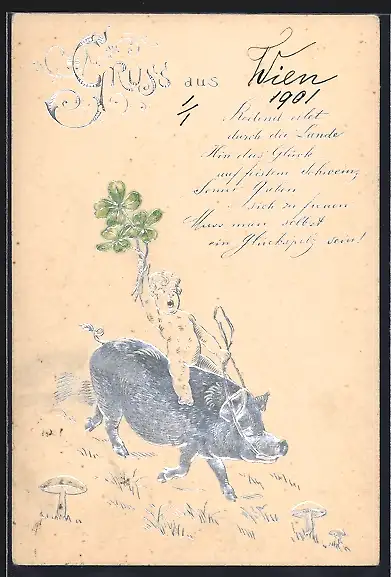 Gruss aus Wien
1/1 1901
Reitend eilet
durch die Lande
Hin das Glück
auf feistem Schwein,
Seiner Gaben
sich zu freuen
Muss man selbst
ein Glückspilz sein!